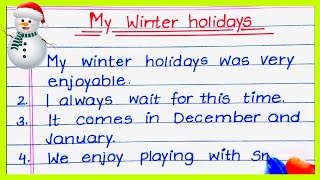 My Winter holidays
My winter holidays was very
enjoyable.
2. I always wait for this time.
3. It comes in December and
January.
4. We enjoy playing with sn